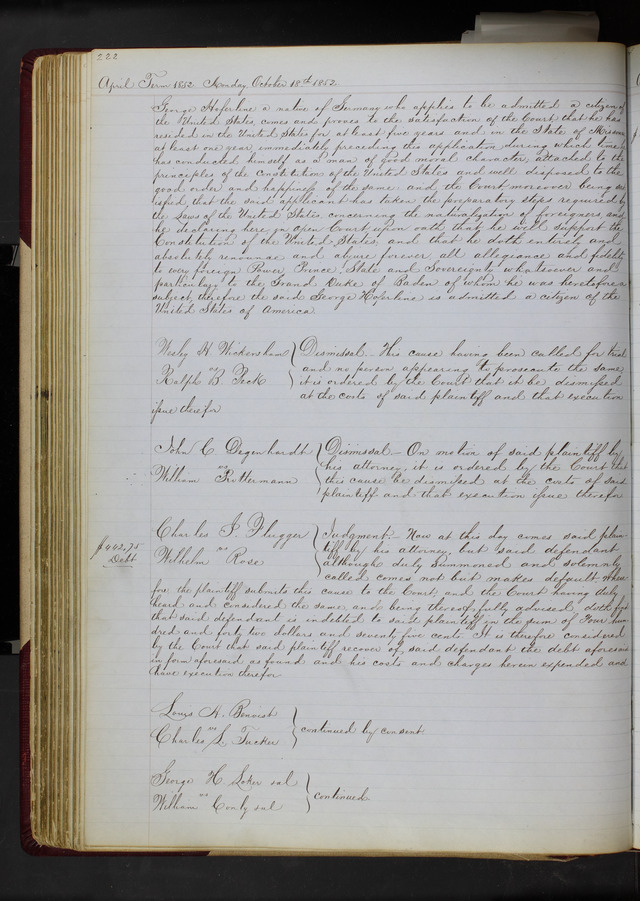 222
April Term 1852 Monday October 18th 1852
George Haferline a native of Germany who applies to be admitted a citizen of
the United States, comes and proves to the satisfaction of the Court that he has
resided in the United States for at least five years and in the State of Missouri
at least one year, immediately preceding this application, during which time he
has conducted himself as a man of good moral character, attached to the
principles of the Constitution of the United States and well disposed to the
good order and happiness of the same and the Court moreover being sat
isfied, that the said applicant has taken the preparatory steps required by
the Laws of the United States concerning the naturalization of foreigners and
he declaring here in open Court upon oath that he will support the
Constitution of the United States, and that he doth entirely and
absolutely renounce and abjure forever all allegiance and fidelity
to every foreign Power, Prince, State and Sovereignty whatsoever and
particularly to the Grand Duke of Baden of whom he was heretofore a
subject, therefore the said George Haferline is admitted a citizen of the
United States of America
Wesley W Wickersham
vs
Ralph B. Peck
Dismissal - This cause having been called for trial
and no person appearing to prosecute the same
it is ordered by the Court that it be dismissed
at the costs of said plaintiff and that execution
issue therefor
John C Degenhardt
vs
William Ruttermann
Dismissal - On motion of said plaintiff by
his attorney, it is ordered by the Court that
this cause be dismissed at the costs of said
plaintiff and that execution issue therefor
$442.75
Debt
Charles F. Plugger
vs
Wilhelm Rose
Judgment - Now at this day comes said plain
tiff by his attorney, but said defendant
although duly summoned and solemnly
called comes not but makes default, where
fore the plaintiff submits this cause to the Court and the Court having duly
heard and considered the same and being thereof fully advised, doth find
that said defendant is indebted to said plaintiff in the sum of Four hun
dred and forty two dollars and seventy five cents It is therefore considered
by the Court that said plaintiff recover of said defendant the debt aforesaid
in form aforesaid as found and his costs and charges herein expended and
have execution therefor
Louis A. Benoist
vs
Charles L Tucker
continued by consent
George H. Loker et al
vs
William Conly et al
continued